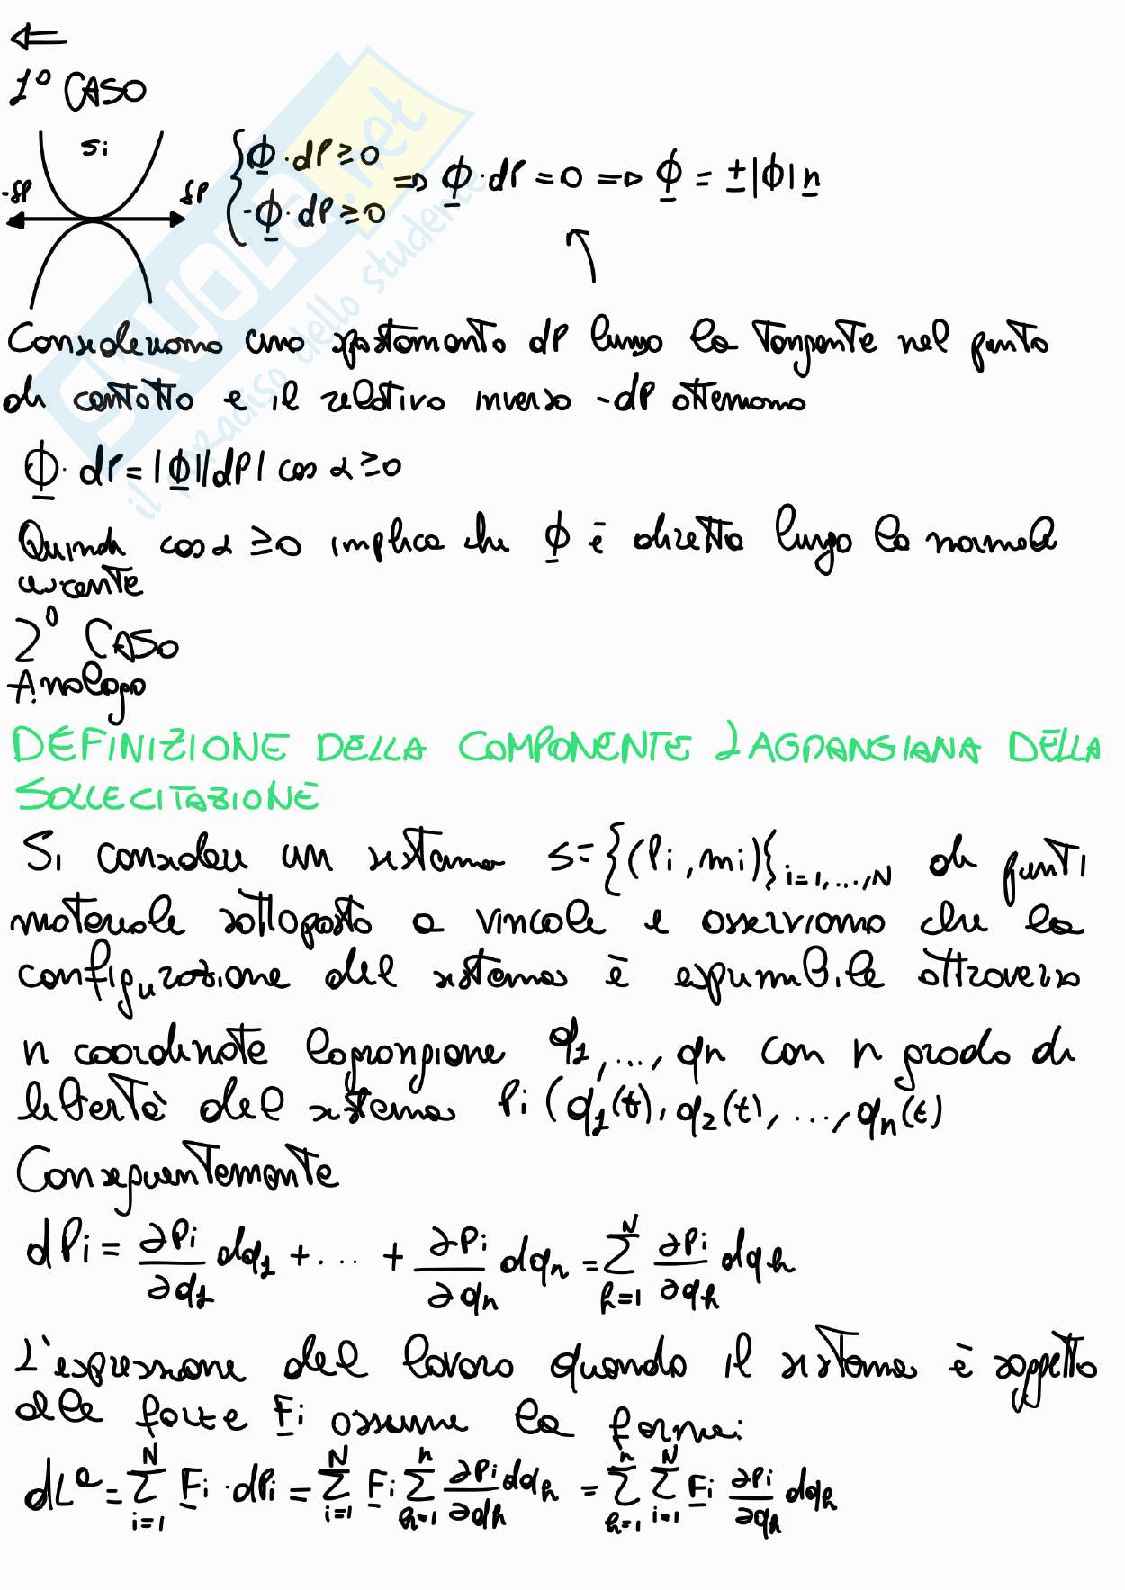 ⇐
1° CASO
Si
-δP δP
{Φ · dP ≥ 0
-Φ · dP ≥ 0 ⇒ Φ · dP = 0 ⇒ Φ = ±|Φ| n
Consideriamo uno spostamento dP lungo la tangente nel punto
di contatto e il relativo inverso -dP otteniamo
Φ · dP = |Φ||dP| cos α ≥ 0
Quindi cos α ≥ 0 implica che Φ è diretta lungo la normale
uscente
2° CASO
Analogo
DEFINIZIONE DELLA COMPONENTE LAGRANGIANA DELLA
SOLLECITAZIONE
Si consideri un sistema S={(Pi, mi)}i=1,...,N di punti
materiale sottoposto a vincoli e osserviamo che la
configurazione del sistema è esprimibile attraverso
n coordinate lagrangiane q1,..., qn con n grado di
libertà del sistema Pi (q1(t), q2(t), ..., qn(t)
Conseguentemente
dPi = ∂Pi/∂q1 dq1 + ... + ∂Pi/∂qn dqn = ∑_{h=1}^{N} ∂Pi/∂qh dqh
L'espressione del lavoro quando il sistema è soggetto
alle forze Fi assume la forma:
dLa = ∑_{i=1}^{N} Fi · dPi = ∑_{i=1}^{N} Fi ∑_{h=1}^{n} ∂Pi/∂qh dqh = ∑_{h=1}^{n} ∑_{i=1}^{N} Fi ∂Pi/∂qh dqh
SKUOLA.net
il paradiso dello studente